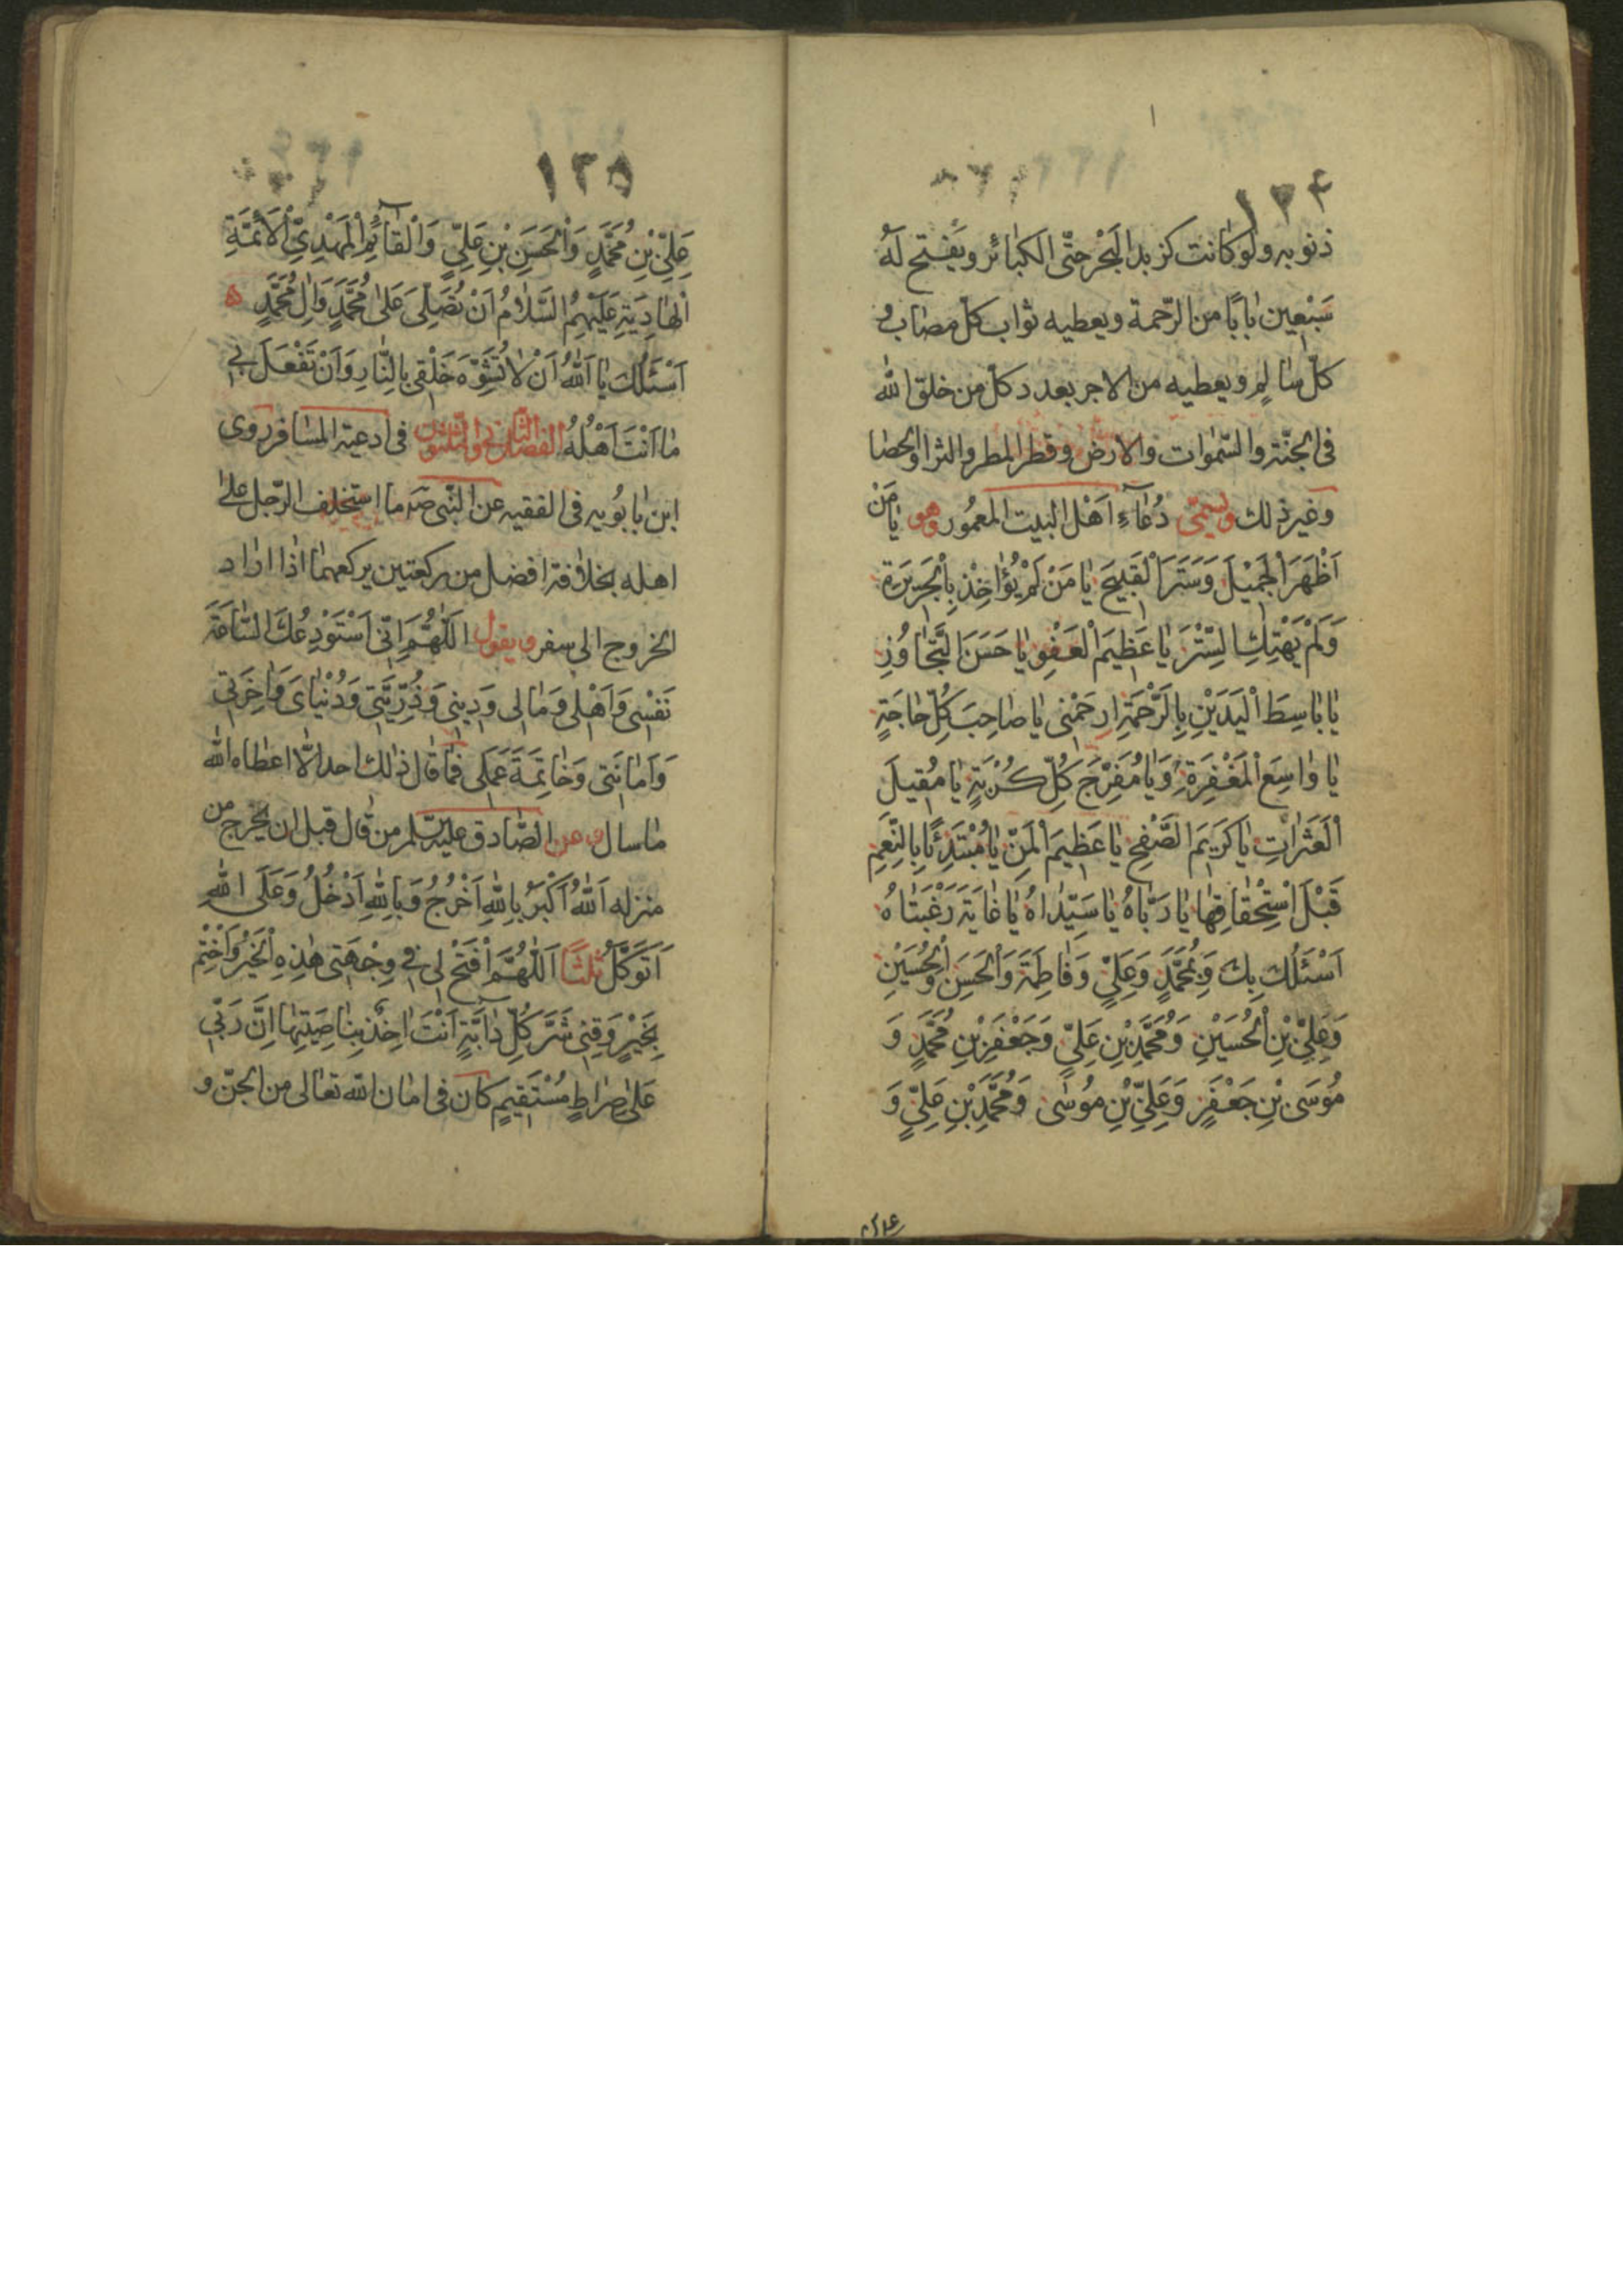 ١٣٤
ذنوبه ولو كانت كزبد البحر حتّى الكبائر ويَفتح لَهُ
سَبْعين بابًا من الرّحمة ويعطيه ثواب كلّ مصاب و
كلّ سالمٍ ويعطيه من الاجر بعدد كلّ من خلق الله
فى الجنّة والسّموات والارض وقطر المطر والثرا والحصا
وغير ذلك ويسمّى دُعَآءِ اَهْل البيت المعمُور وهو يَا مَنْ
اَظْهَرَ الْجَمْيلَ وَسَتَرَ الْقَبيحَ يَا مَنْ لَمْ يُؤَاخِذْ بِالْجَرَيرَةِ
وَلَمْ يَهْتِكِ السِّتْرَ يَا عَظيمَ الْعَفْوِ يَا حَسَنَ التَّجَاوُزِ
يَا بَاسِطَ الْيَدَيْنِ بِالرَّحْمَةِ اِرحَمْنى يَا صَاحِبَ كُلِّ حَاجَةٍ
يَا وَاسِعَ الْمَغْفِرَةِ وَيَا مُفَرِّجَ كُلِّ كُرْبَةٍ يَا مُقيلَ
الْعَثَرَاتِ يَا كَرَيمَ الصَّفْحِ يَا عَظيمَ الْمَنِّ يَا مُبْتَدِئًا بِالنِّعَمِ
قَبْلَ اسْتِحْقَاقِهَا يَا رَبَّاهُ يَا سَيِّدَاهُ يَا غَايَةَ رَغْبَتَاهُ
اَسْئَلُكَ بِكَ وَبِمُحَمَّدٍ وَعَلِىٍّ وَفَاطِمَةَ وَالْحَسَنِ وَالْحُسَيْنِ
وَعَلِىِّ بْنِ الْحُسَيْنِ وَمُحَمَّدِ بْنِ عَلِىٍّ وَجَعْفَرِ بْنِ مُحَمَّدٍ وَ
مُوسَى بْنِ جَعْفَرٍ وَعَلِىِّ بْنِ مُوسَى وَمُحَمَّدِ بْنِ عَلِىٍّ وَ
١٣٥
عَلِىِّ بْنِ مُحَمَّدٍ وَالْحَسَنِ بْنِ عَلِىٍّ وَالْقَآئِمِ الْمَهْدِىِّ الْاَئمَّةِ
الْهَادِيَةِ عَلَيْهِمُ السَّلامُ اَنْ تُصَلِّىَ عَلى مُحَمَّدٍ وَالِ مُحَمَّدٍ
اَسْئَلُكَ يَا اَللهُ اَنْ لَا تُشَوِّهَ خَلْقى بِالنَّارِ وَاَنْ تَفْعَلَ بى
مَا اَنْتَ اَهْلُهُ الفصل الثانى والثلثون فى ادعية المسافر روى
ابن بابُويه فى الفقيه عن النّبى صه ما استخلف الرّجل على
اهله بخلافة افضل من ركعتين يركعهما اذا اراد
الخروج الى سفر ويقول اللّهُمَّ اِنّى اَسْتَوْدِعُكَ السَّاعَةَ
نَفْسى وَاَهْلى وَمَالى وَدينى وَذُرِّيَّتى وَدُنْيَاىَ وَاخِرَتى
وَاَمَانَتى وَخَاتِمَةَ عَمَلى فما قال ذلك احد الّا اعطاه الله
ما سال وعن الصّادق عليه السلم من قال قبل ان يخرج من
منزله اَللهُ اَكْبَرُ بِاللهِ اَخْرُجُ وَبِاللهِ اَدْخُلُ وَعَلَى اللهِ
اَتَوَكَّلُ ثلثًا اَللّهُمَّ افْتَحْ لى فى وِجْهَتى هذِهِ الْخَيْرَ وَاخْتِمْ
بِخَيْرٍ وَقِنى شَرَّ كُلِّ دَآبَّةٍ اَنْتَ اخِذٌ بِنَاصِيَتِهَا اِنَّ رَبّى
عَلى صِرَاطٍ مُسْتَقيمٍ كان فى امان الله تعالى من الجنّ و